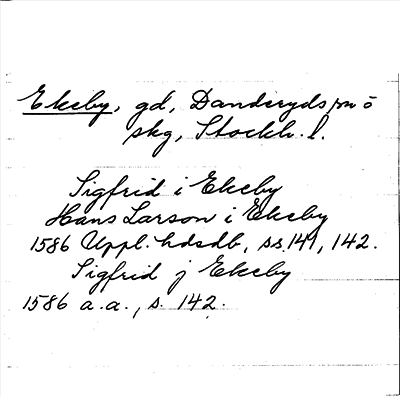 Ekeby, gd, Danderyds sn o
skg, Stockh. l.
Sigfrid i Ekeby
Hans Larson i Ekeby
1586 Uppl. hdsdb, ss. 141, 142.
Sigfrid j Ekeby
1586 a. a., s. 142.